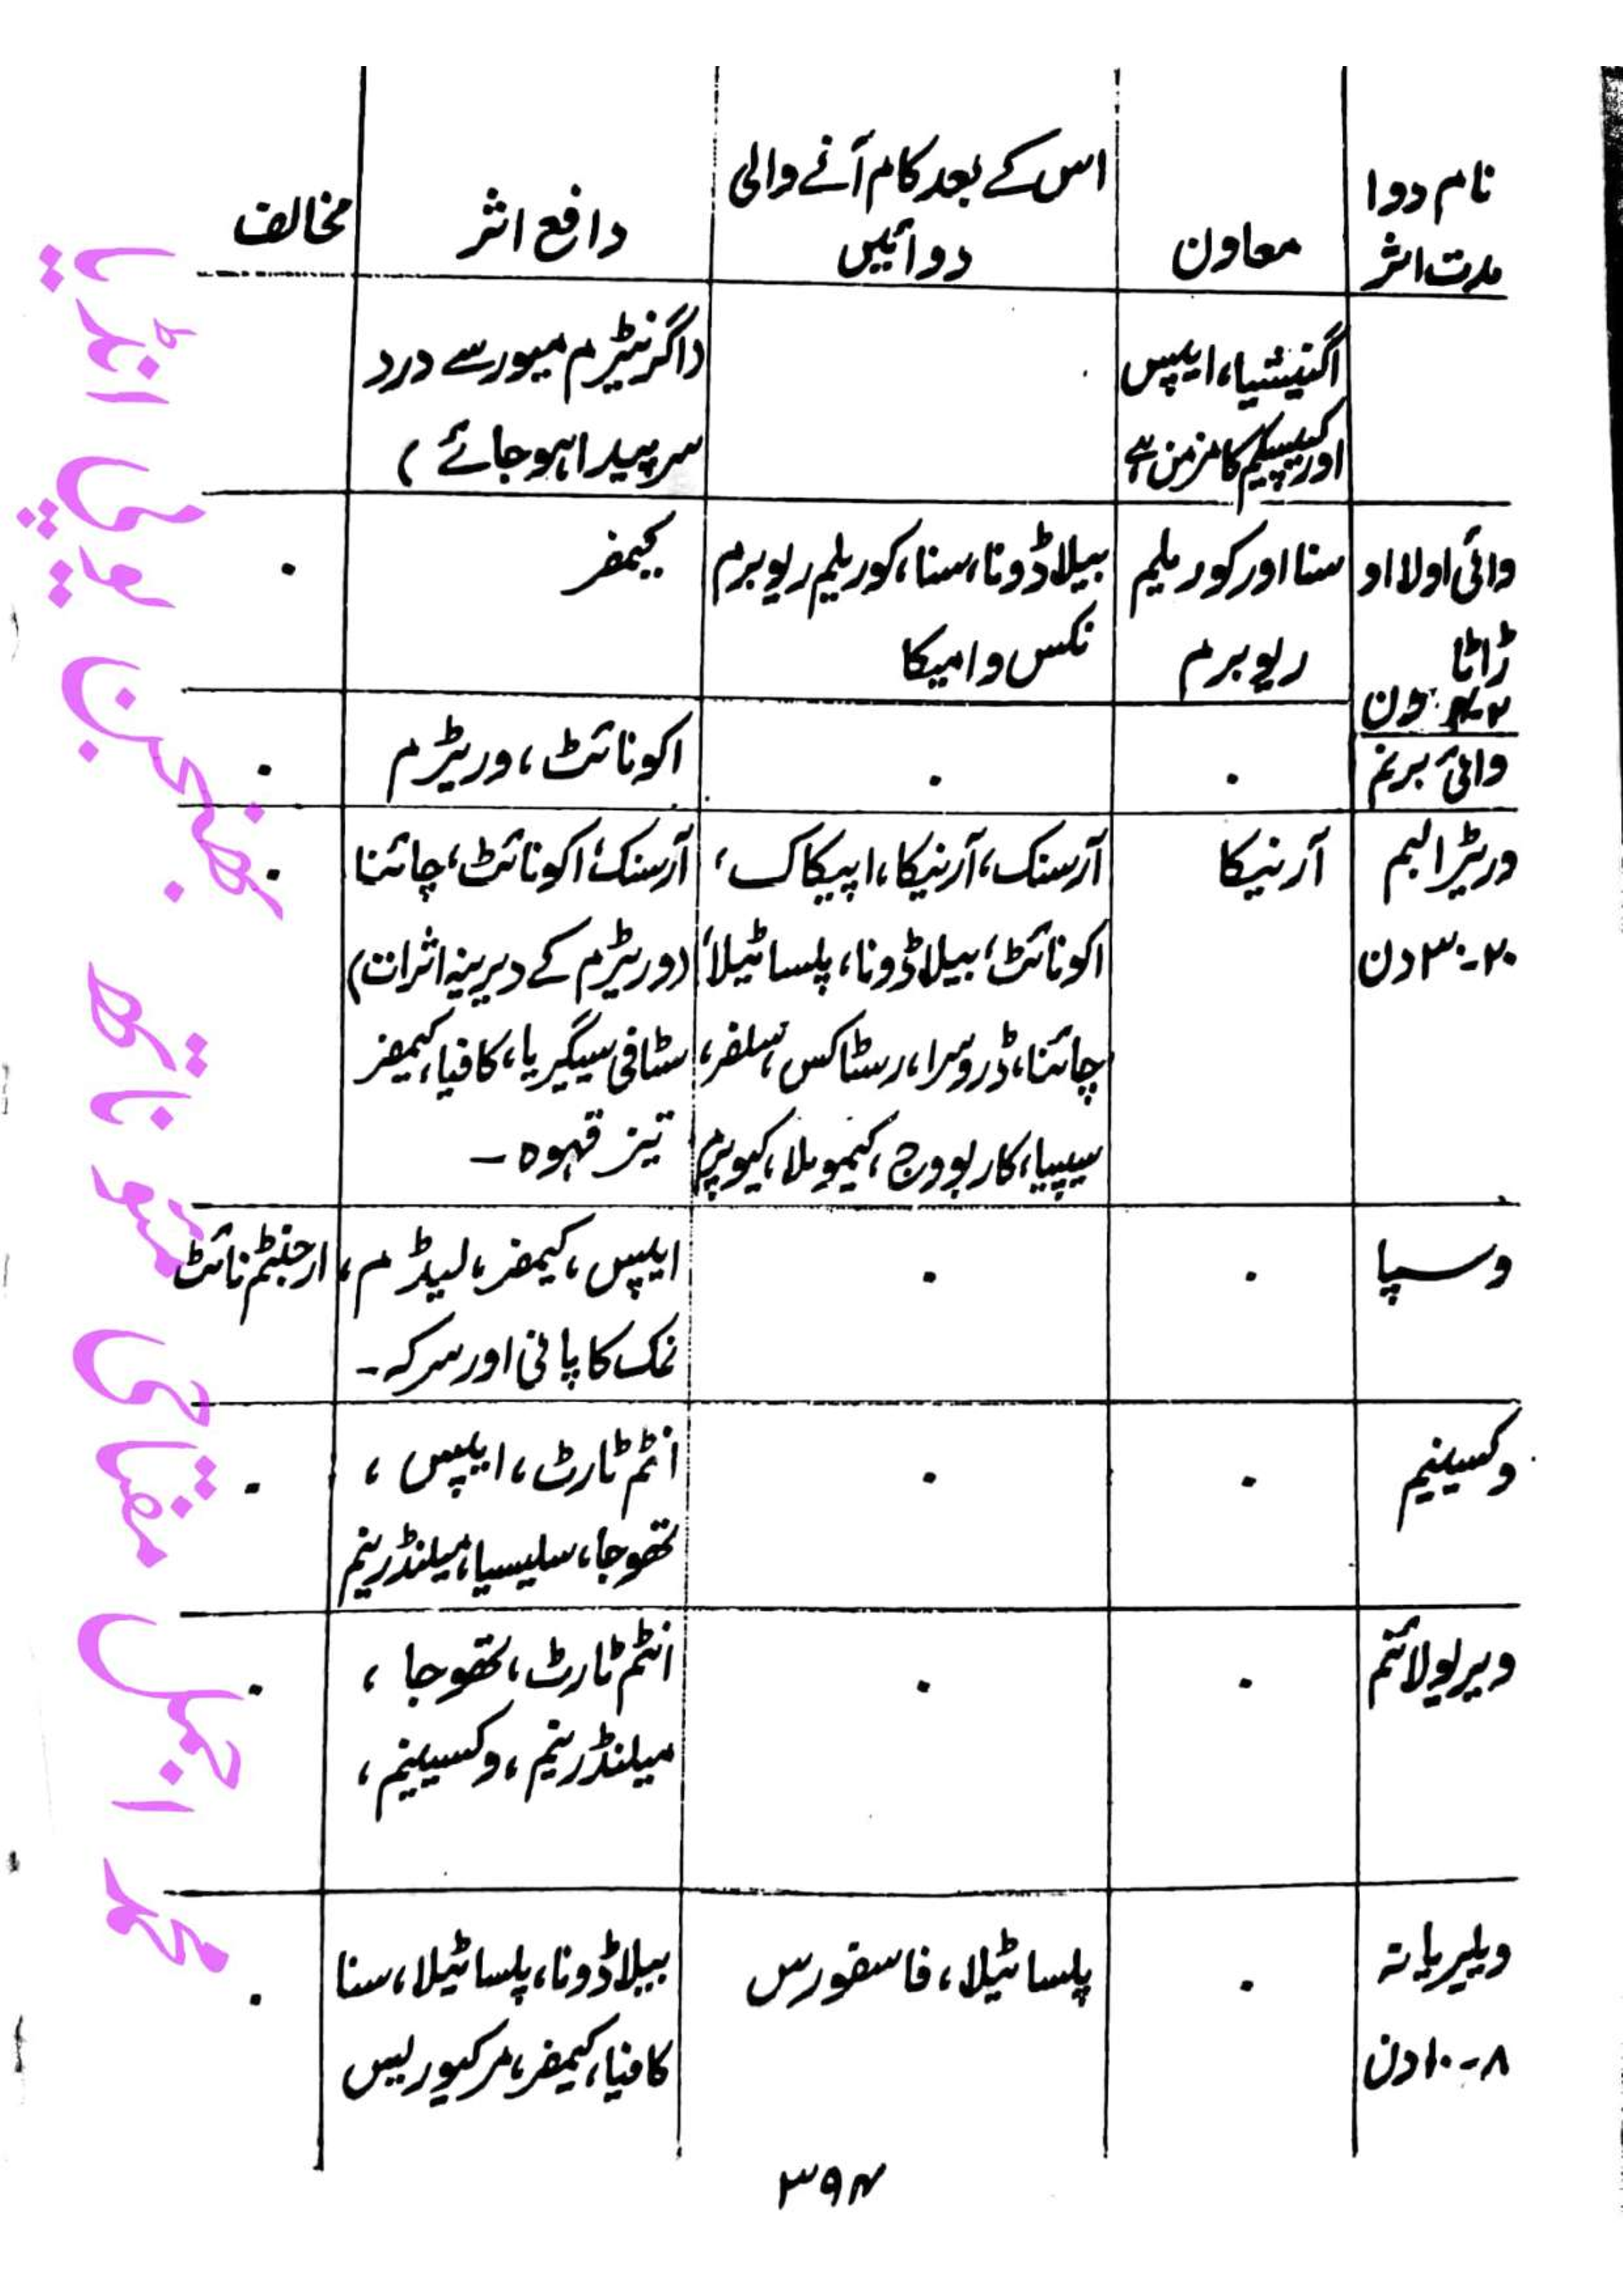 نام دوا
مدت اثر
معاون
اس کے بعد کام آنے والی
دوائیں
دافع اثر
مخالف
اگنیشیا، ایپس
اور کیپسیکم کا مزمن ہے
(اگر نیٹرم میور سے درد
سر پیدا ہو جائے)
وائی اولا او
ڈاٹا
دن
سنا اور کوریلیم
ریوبرم
بیلاڈونا، سنا، کوریلیم ریوبرم
نکس وامیکا
کیمفر
۰
وائی برنم
۰
۰
اکونائٹ، وریٹرم
۰
وریٹرا لبم
۲۰-۳۰ دن
آرنیکا
آرسنک، آرنیکا، اپیکاک،
اکونائٹ، بیلاڈونا، پلساٹیلا،
چائنا، ڈروسرا، رسٹاکس، سلفر،
سیپیا، کاربوویج، کیمومِلا، کیوپرم
آرسنک، اکونائٹ، چائنا
(وریٹرم کے دیرینہ اثرات)
سٹافی سیگیریا، کافیا، کیمفر
تیز قہوہ ۔
۰
وسپا
۰
۰
ایپس، کیمفر، لیڈم،
نمک کا پانی اور سرکہ ۔
ارجنٹم نائٹ
وکسینیم
۰
۰
انٹم ٹارٹ، ایپس،
تھوجا، سلیسیا، میلنڈرینم
۰
ویریولائنم
۰
۰
انٹم ٹارٹ، تھوجا،
میلنڈرینم، وکسینیم،
۰
ویلیریانہ
۸-۱۰ دن
۰
پلساٹیلا، فاسفورس
بیلاڈونا، پلساٹیلا، سنا
کافیا، کیمفر، مرکیوریس
۰
۳۹۴
محمد اجمل مفتاحی مئو ناتھ بھنجن یوپی انڈیا